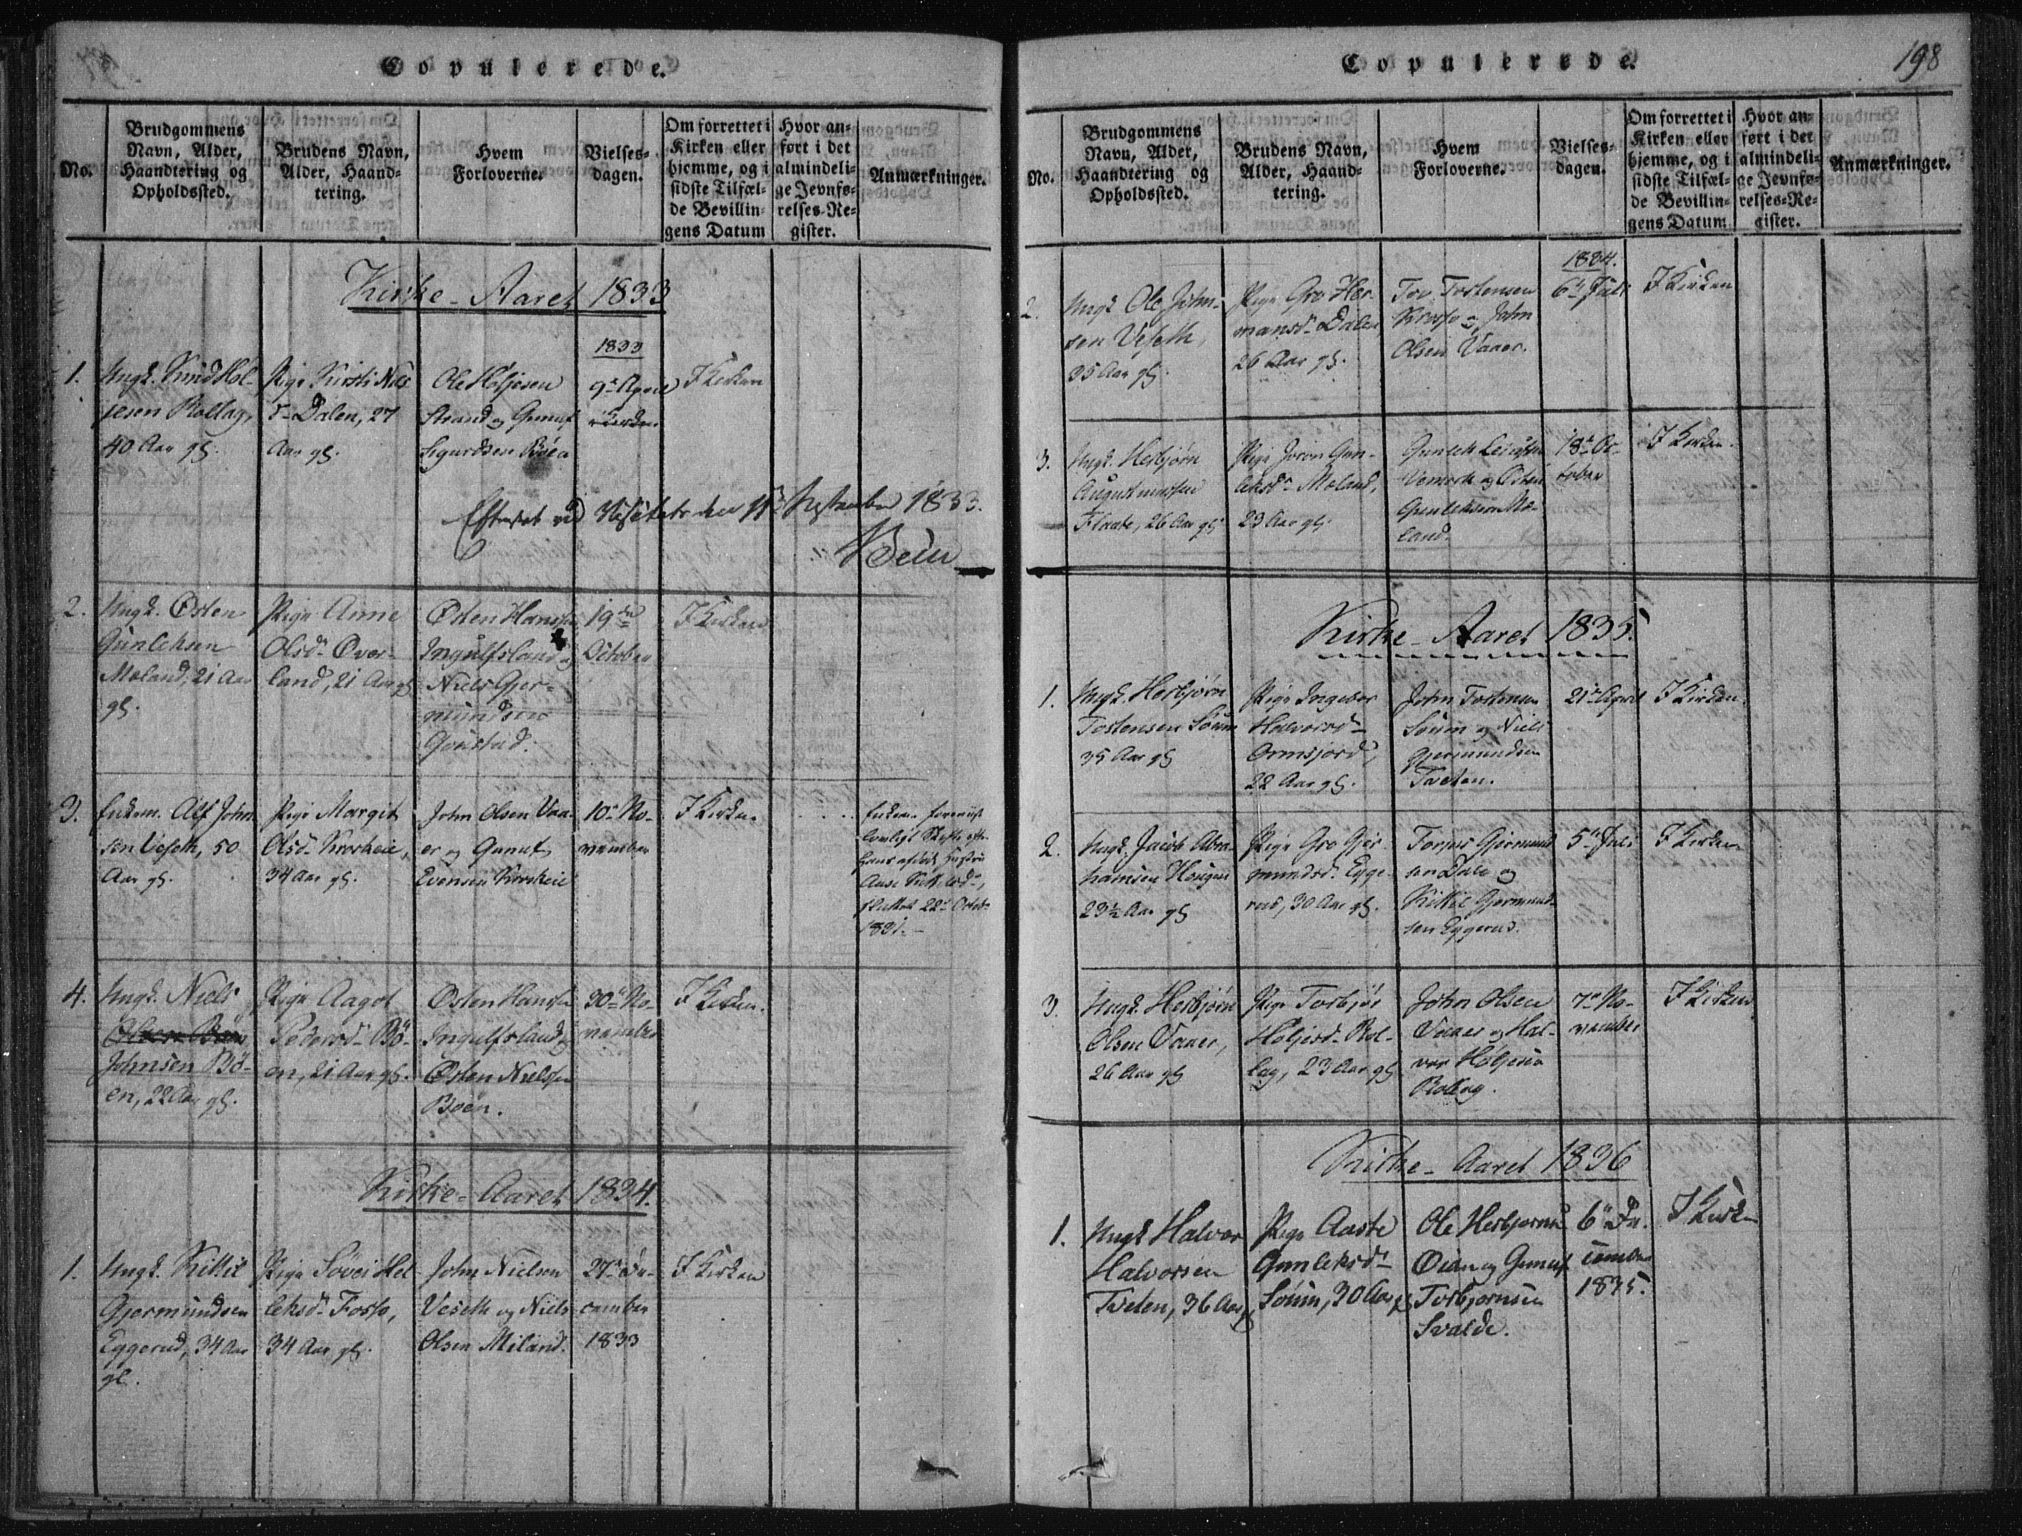 Copulerede.
No.
Brudgommens
Navn, Alder,
Haandtering og
Opholdssted.
Brudens Navn,
Alder, Haand-
tering.
Hvem
Forloverne.
Vielses-
dagen.
Om forrettet i
Kirken eller
hjemme, og i
sidste Tilfæl-
de Bevillin-
gens Datum
Hvor an-
ført i det
almindeli-
ge Jevnfø-
relses-Re-
gister.
Anmærkninger.
Kirke-Aaret 1833
1.
Ungk. Knud Høl-
jesen Rollag,
40 Aar gl.
Pige Kirsti Nils
d. Dalen, 27
Aar gl.
Ole Höljesen
Strand og Gunuf
Sigurdsen Böen
1833
9de April
i Kirken
I Kirken
Efterseet ved Visitats den 11te September 1833.
2.
Ungk. Østen
Gunleksen
Moland, 21 Aar
gl.
Pige Anne
Olsd. Øver-
land, 21 Aar gl.
Østen Hansen
Ingulfsland og
Niels Gjer-
mundsen
Gøustad.
19de
October
I Kirken
3.
Enkem. Alf John-
sen Veseth, 50
Aar gl.
Pige Margit
Olsd. Krosheie,
34 Aar gl.
John Olsen Vaa-
er og Gunuf
Evensen Krosheie
10de No-
vember
I Kirken.
Enkem. foreviist
lovligt Skifte efter
hans afdöde Hustru
22de Octob.
1831.
4.
Ungk. Niels
Johnsen Bö-
en, 22 Aar gl.
Pige Aagot
Pedersd. Bö-
en, 21 Aar gl.
Østen Hansen
Ingulfsland og
Østen Nielsen
Böen.
30te No-
vember
I Kirken.
Kirke-Aaret 1834.
1.
Ungk. Kittil
Gjermundsen
Eggerud, 34 Aar
gl.
Pige Søvei Hel-
leksd. Fosso,
34 Aar gl.
John Nielsen
Veseth og Niels
Olsen Miland.
27de De-
cember
1833
I Kirken
Copulerede.
198
No.
Brudgommens
Navn, Alder,
Haandtering og
Opholdssted.
Brudens Navn,
Alder, Haand-
tering.
Hvem
Forloverne.
Vielses-
dagen.
Om forrettet i
Kirken eller
hjemme, og i
sidste Tilfæl-
de Bevillin-
gens Datum.
Hvor an-
ført i det
almindeli-
ge Jevnfø-
relses-Re-
gister.
Anmærkninger.
2.
Ungk. Ole John-
sen Veseth,
35 Aar gl.
Pige Gro Her-
mansd. Dalen,
26 Aar gl.
Tov Tostensen
Krosso og John
Olsen Vaaer.
1834.
6te Juli
I Kirken
3.
Ungk. Herbjørn
Augustinussen
Flaate, 26 Aar gl.
Pige Joron Gun-
leksd. Moland,
23 Aar gl.
Gunlek Leidulfsen
Vemork og Østen
Gunleksen Mo-
land.
18de Oc-
tober
I Kirken.
Kirke-Aaret 1835.
1.
Ungk. Herbjørn
Tostensen Søum
35 Aar gl
Pige Ingebor
Halvorsd.
Ormsjord,
22 Aar gl.
John Tostensen
Søum og Niels
Gjermundsen
Tveten.
21de April
I Kirken.
2.
Ungk. Jacob Abra-
hamsen Haugen
23½ Aar gl
Pige Gro Gjer-
mundsd. Egge-
rud, 30 Aar gl.
Torjus Gjermund-
sen Dale og
Kittil Gjermund-
sen Eggerud.
5te Juli
I Kirken
3.
Ungk. Herbjørn
Olsen Vaaer,
26 Aar gl
Pige Torbjør
Höljesd. Rol-
lag, 23 Aar gl
John Olsen
Vaaer og Hal-
vor Höljesen
Rollag.
7de No-
vember
I Kirken
Kirke-Aaret 1836
1.
Ungk. Halvor
Halvorsen
Tveten, 36 Aar gl
Pige Aaste
Gunleksd.
Søum, 30 Aar gl
Ole Herbjornsen
Øian og Gunuf
Torbjornsen
Svalde.
6te De-
cember
1835.
I Kirken